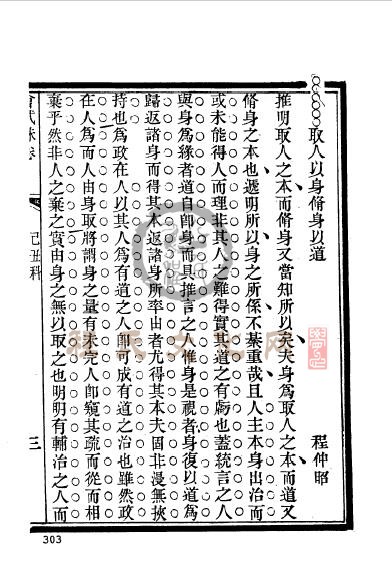 取人以身脩身以道
程仲昭
推明取人之本而脩身又當知所以矣夫身為取人之本而道又
脩身之本也遞明所以身之所係不綦重哉且人主本身出治而
或未能得人而理非其人之難得實其道之有虧也蓋統言之人
與身為緣者道自卽身而具推言之人惟身是視者身復以道為
歸返諸身而得其本返諸身所率由者尤得其本夫固非漫無挾
持也為政在人以其人為有道之人卽可成有道之治也雖然政
在人為而人由身取將謂身之量有未完人卽窺其疏而從而相
棄乎然非人之棄之實由身之無以取之也明明有輔治之人而
會試硃卷
己丑科
三
303